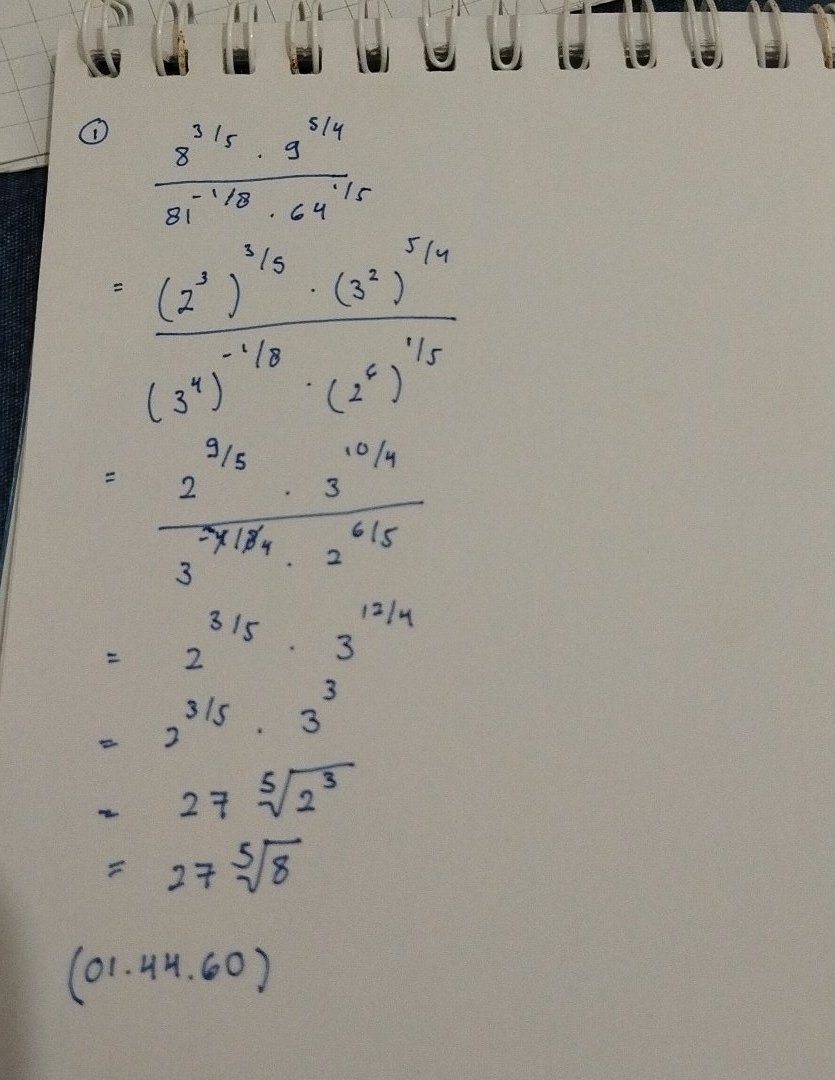 ①
8^3/5 . 9^5/4
81^-1/8 . 64^1/5
= (2^3)^3/5 . (3^2)^5/4
(3^4)^-1/8 . (2^6)^1/5
= 2^9/5 . 3^10/4
3^-4/84 . 2^6/5
= 2^3/5 . 3^12/4
= 2^3/5 . 3^3
= 27 ⁵√2^3
= 27 ⁵√8
(01.44.60)